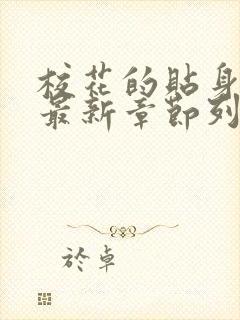 校花的貼身
最新章節列
於卓